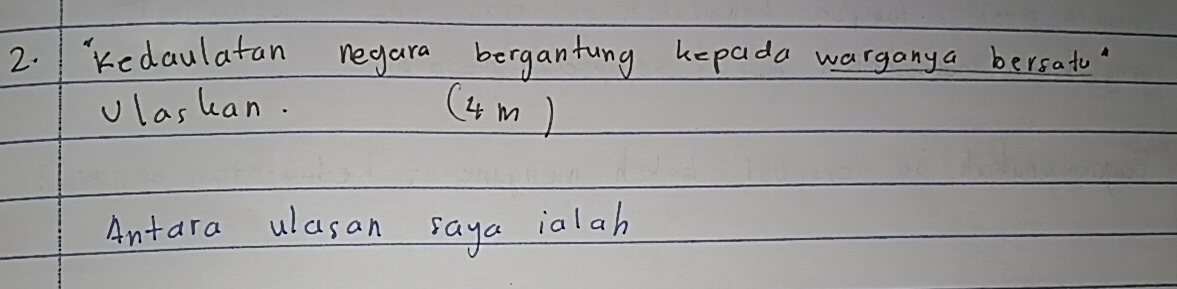 2. "Kedaulatan negara bergantung kepada warganya bersatu"
Ulaskan. (4 m)
Antara ulasan saya ialah